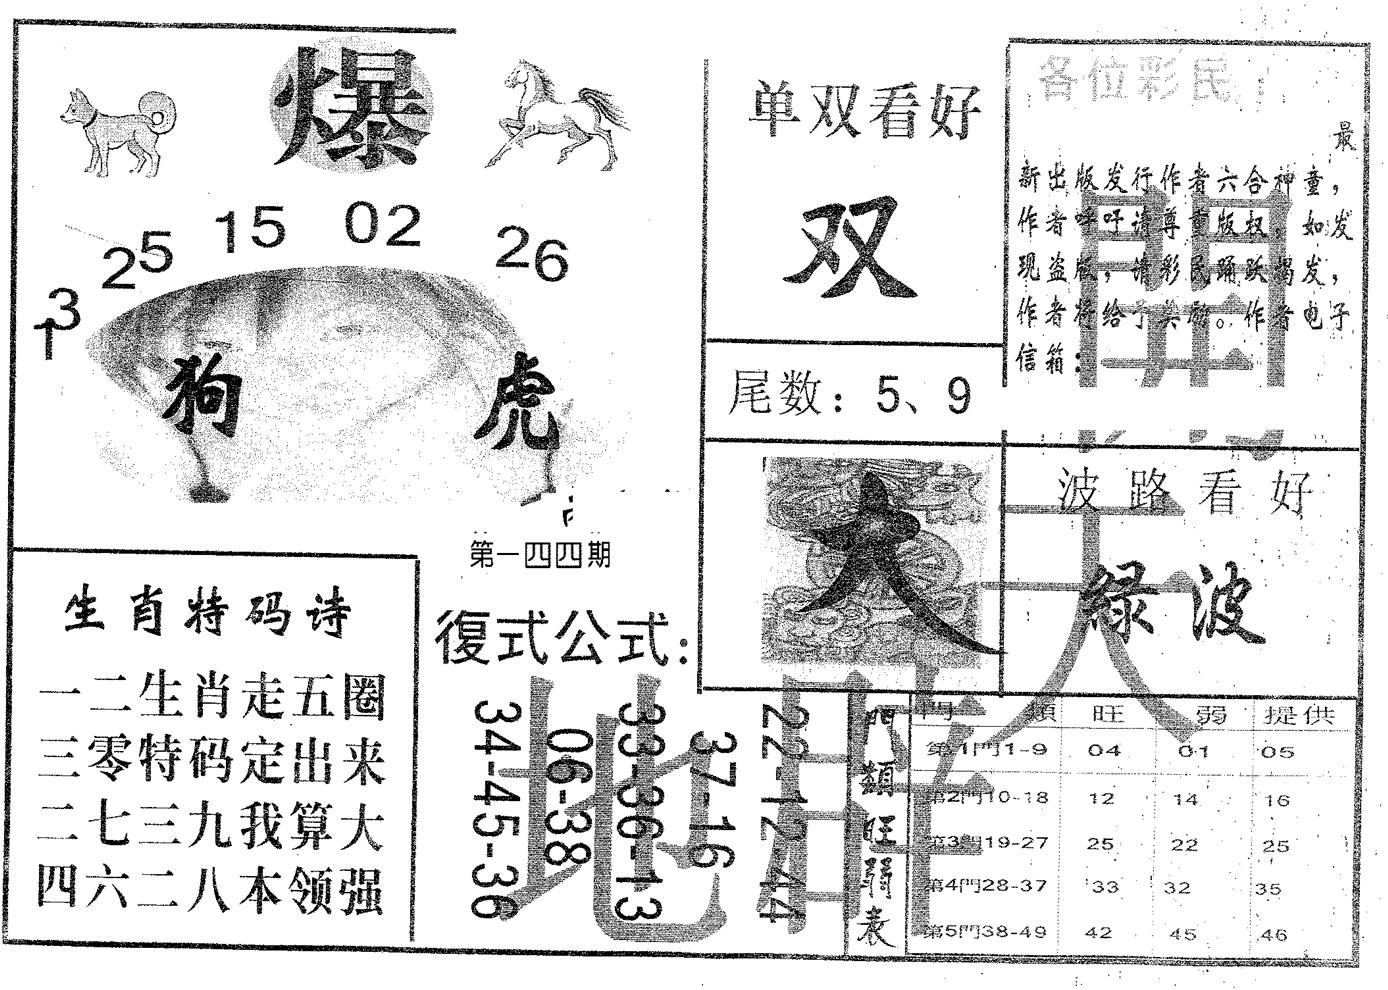 爆
13 25 15 02 26
狗 虎
第一四四期
生肖特码诗
一二生肖走五圈
三零特码定出来
二七三九我算大
四六二八本领强
復式公式:
34-45-36
06-38
33-36-13
37-16
22-12-44
单双看好
双
尾数:5、9
各位彩民:
最
新出版发行作者六合神童,
作者呼吁请尊重版权,如发
现盗版,请彩民踊跃揭发,
作者将给予奖励。作者电子
信箱:
大
波路看好
緑波
門類旺弱表
門類 旺 弱 提供
第1門1-9 04 01 05
第2門10-18 12 14 16
第3門19-27 25 22 25
第4門28-37 33 32 35
第5門38-49 42 45 46